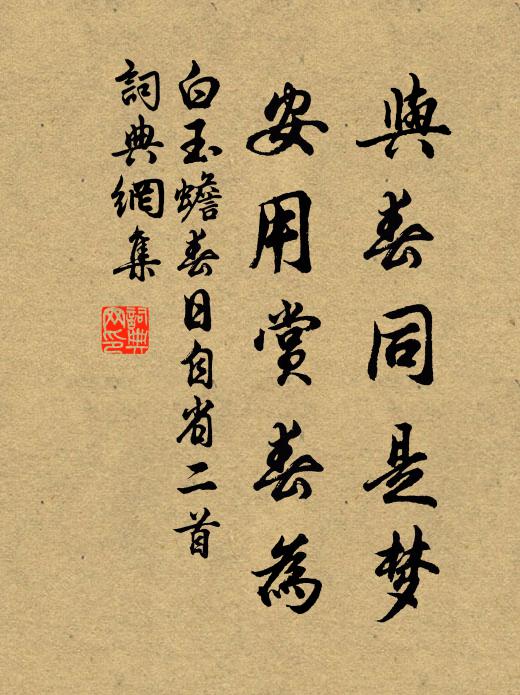 與春同是梦
安用赏春為
白玉蟾春日自省二首
詞典網集
詞典
网印